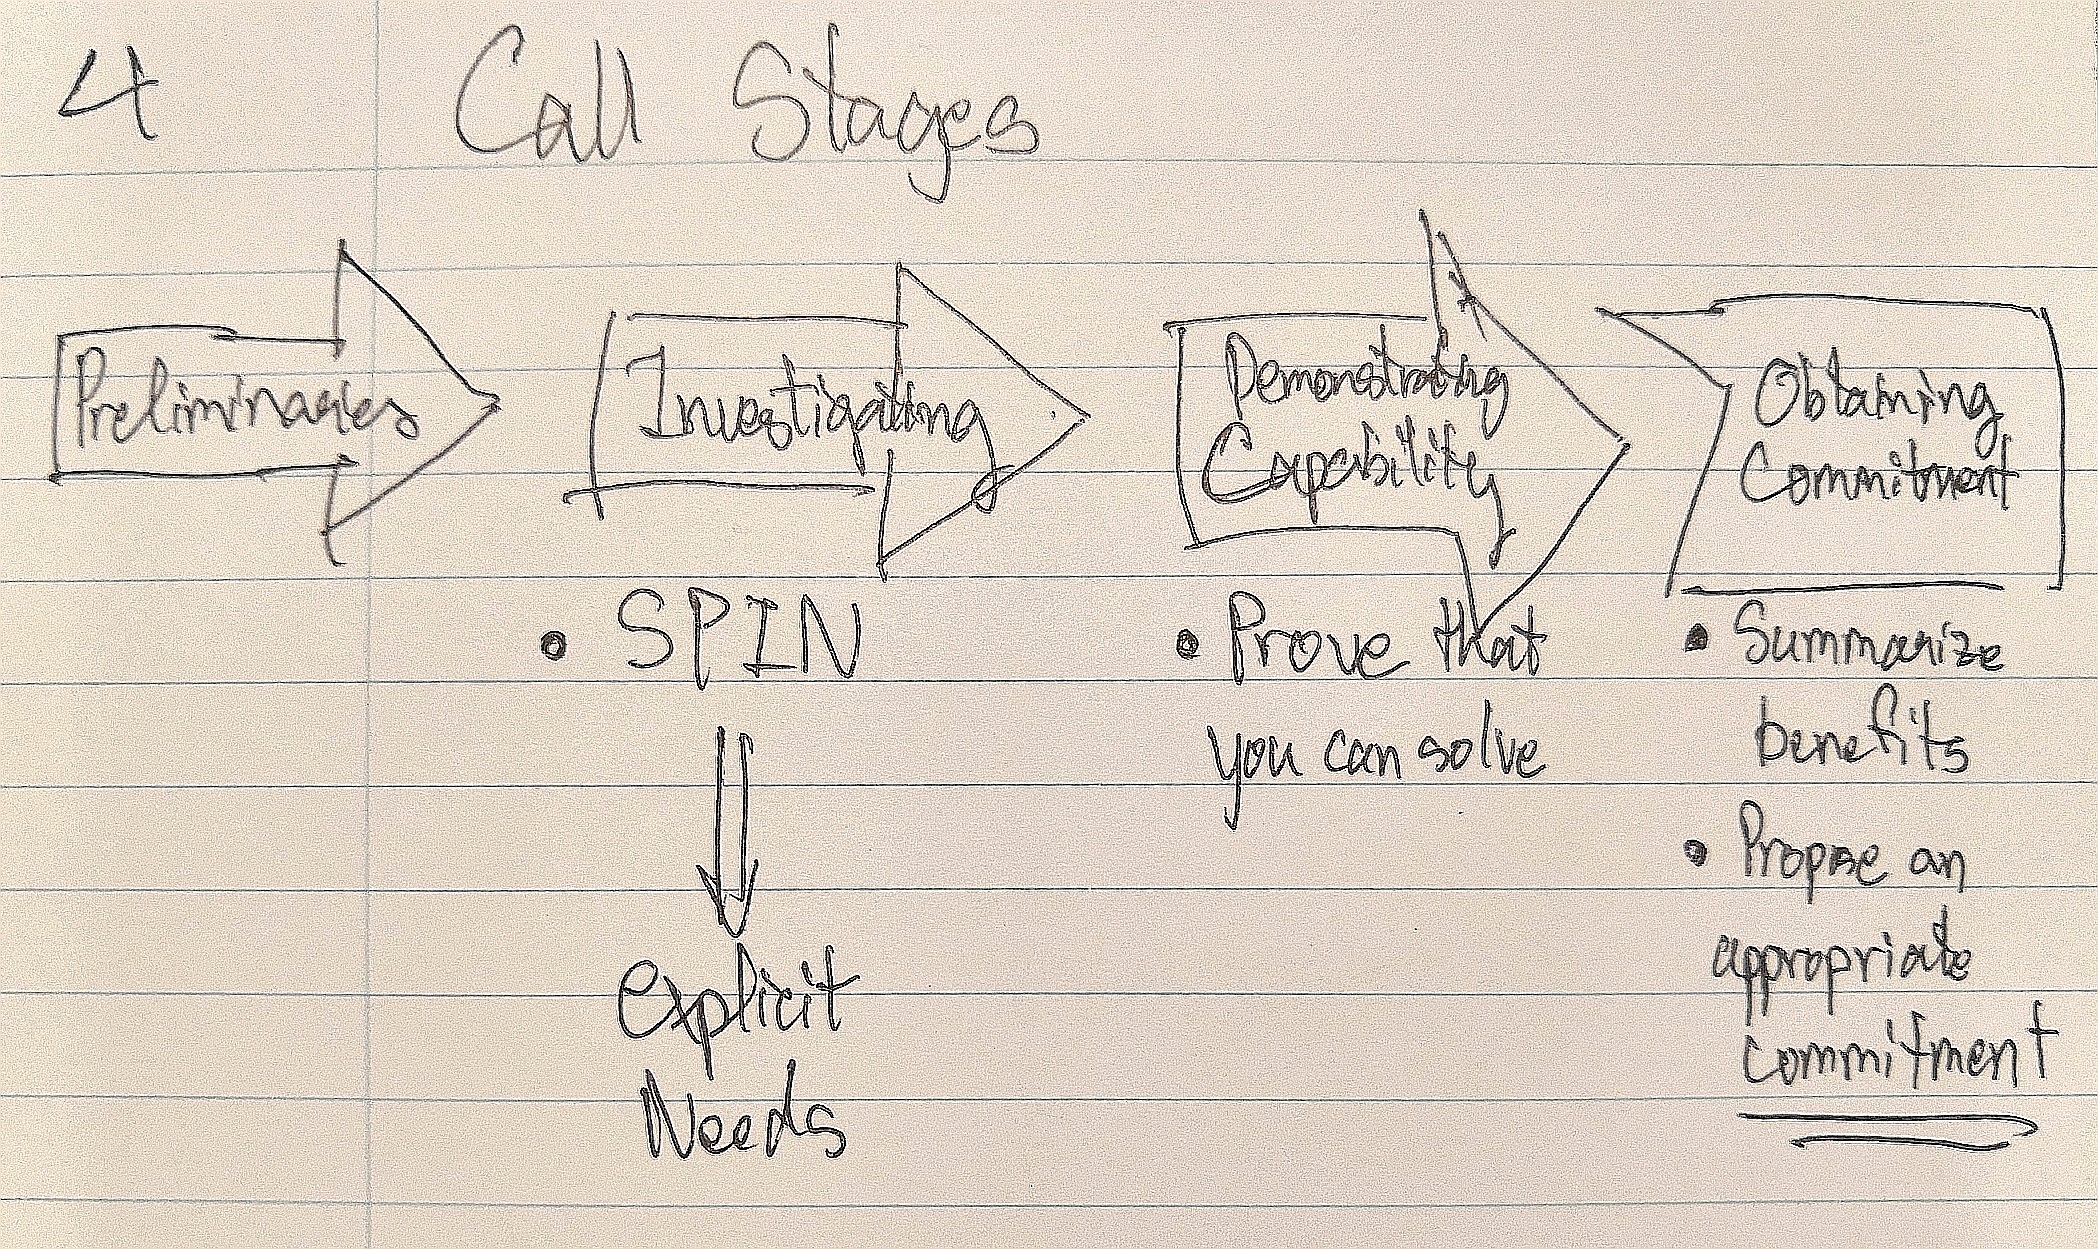 4 Call Stages
Preliminaries
Investigating
Demonstrating
Capability
Obtaining
Commitment
• SPIN
Explicit
Needs
• Prove that
you can solve
• Summarize
benefits
• Propose an
appropriate
commitment